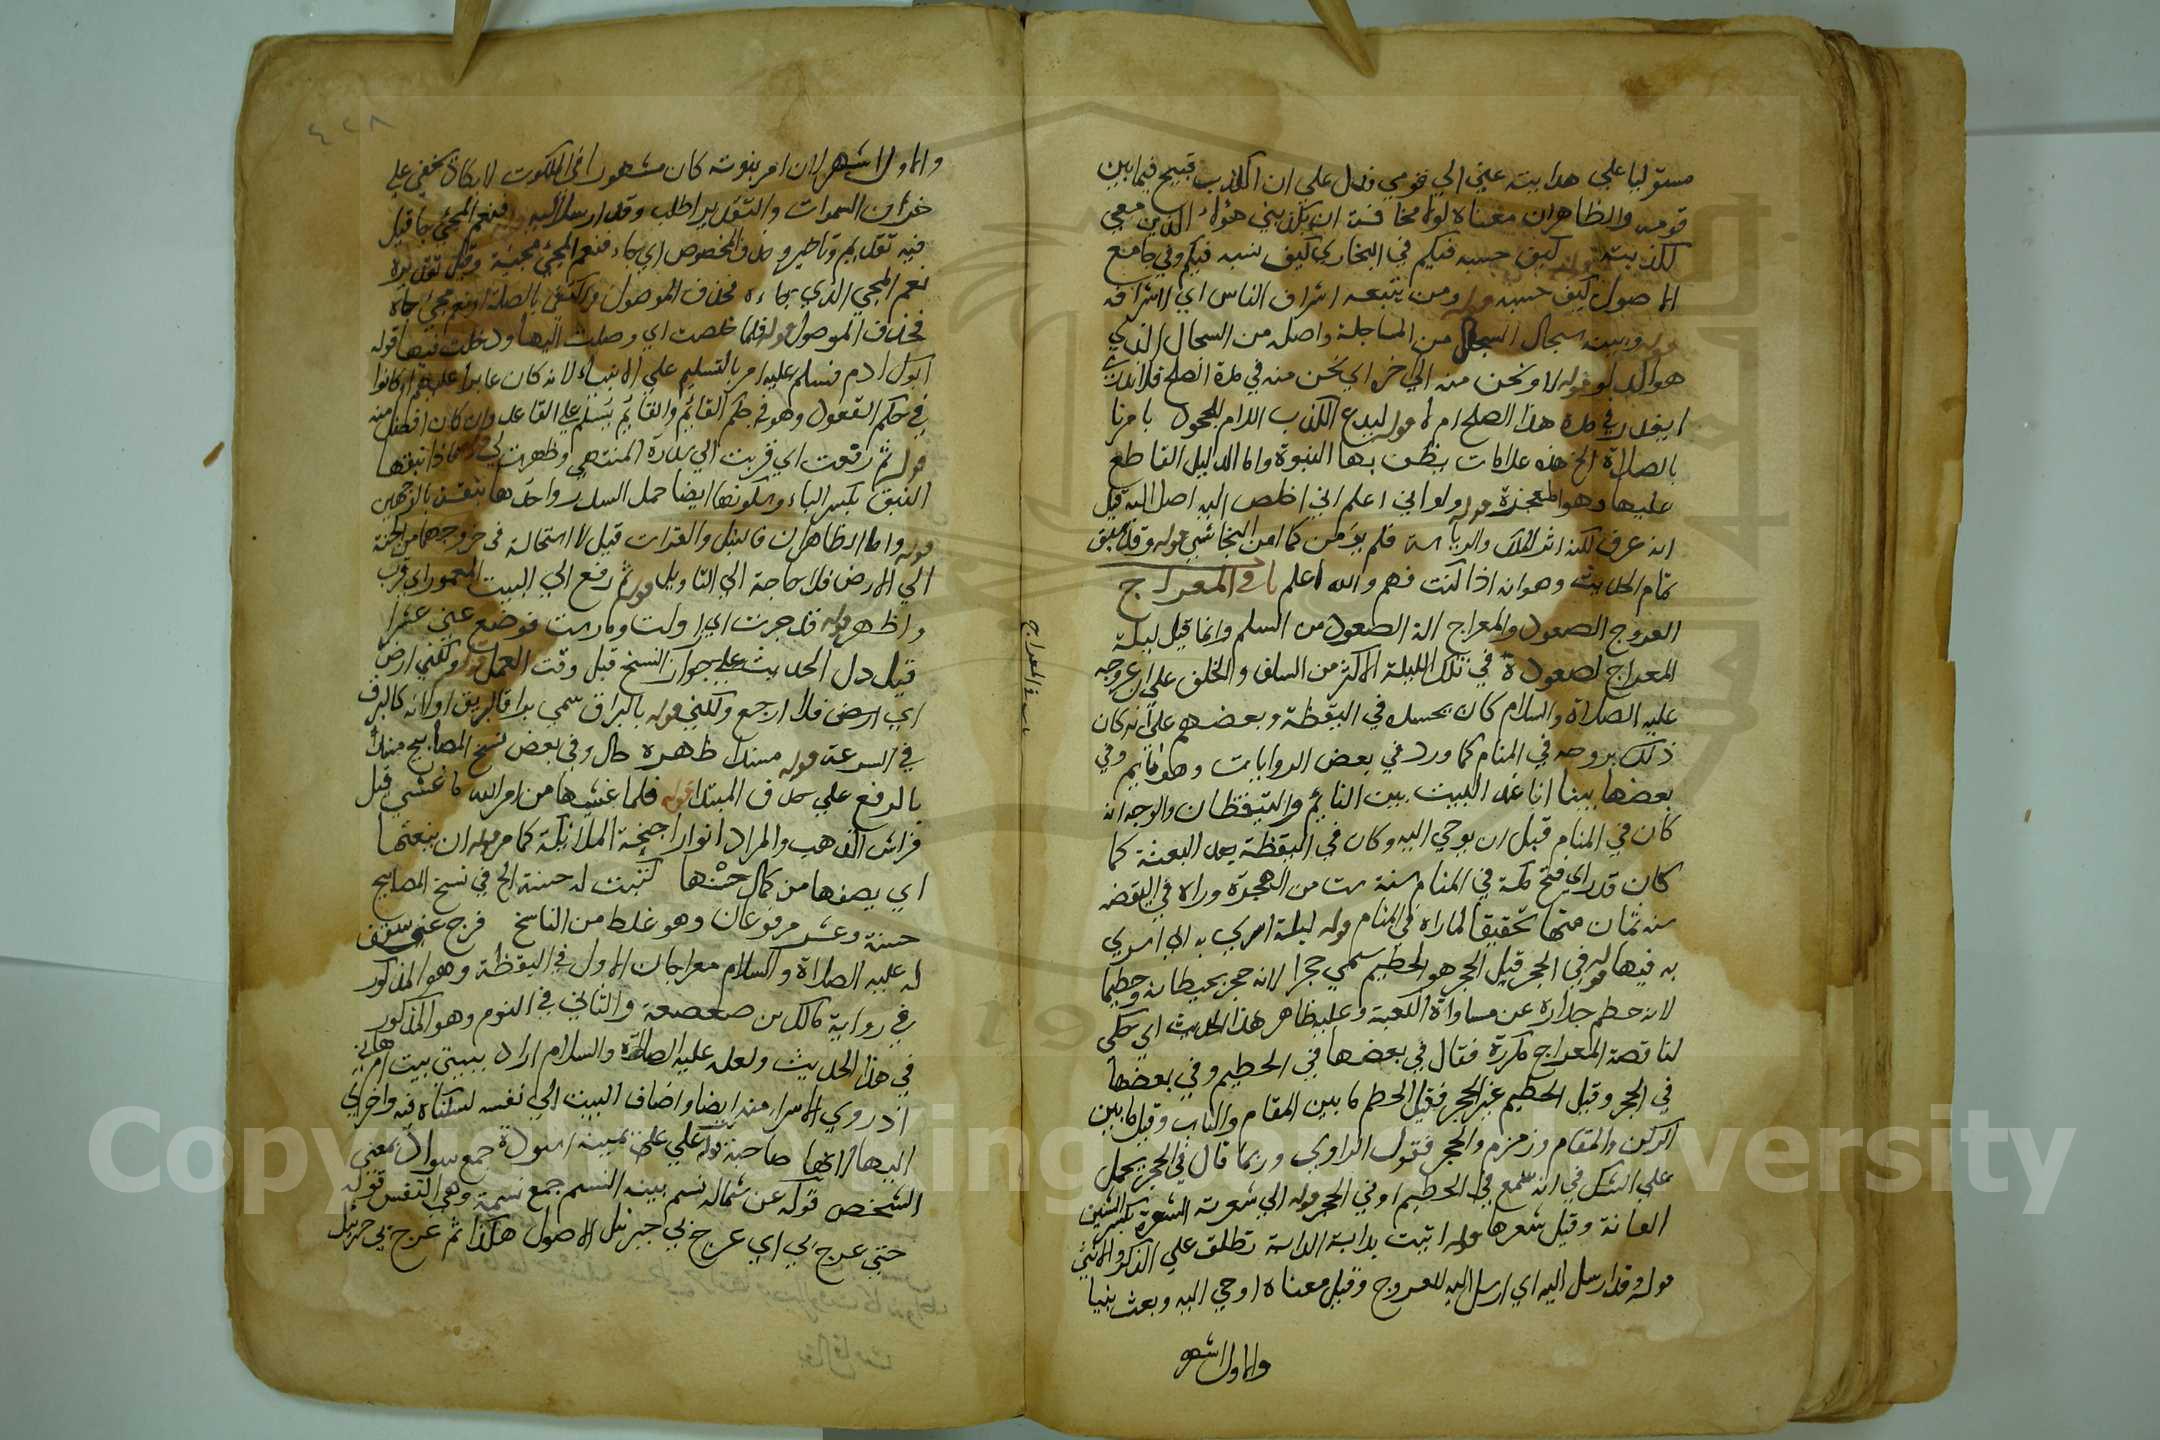 مستوليا علي هدايته عني الي قومي فدل علي ان الكذب قبيح فيما بين
قومه والظاهر ان معناه لولا مخافة ان يكذبني هؤلاء الذين معي
لكذبته كيف حسبه فيكم في البخاري كيف نسبه فيكم وفي جامع
الاصول كيف حسبه قوله ومن يتبعه اشراف الناس اي لاشرافه
قوله وبينه سجال السجال من المساجلة واصله من السجال الذي
هو الدلو قوله لا ونحن منه الي اخره اي نحن منه في مدة الصلح فلا ندري
ايغدر في مدة هذا الصلح ام لا قوله ليدع الكذب اللام للجحود يامرنا
بالصلاة الخ هذه علامات يظن بها النبوة واما الدليل القاطع
عليها وهو المعجزة قوله ولو اني اعلم اني اخلص اليه اصل اليه قيل
انه عرف لكنه اثر الملك والرياسة فلم يؤمن كما امن النجاشي قوله وقد سبق
تمام الحديث وهو انه اذا كنت فهم والله اعلم باب في المعراج
العروج الصعود والمعراج الة الصعود من السلم وانما قيل ليلة
المعراج لصعوده في تلك الليلة الاكثر من السلف والخلف علي ان عروجه
عليه الصلاة والسلام كان بجسده في اليقظة وبعضهم علي انه كان
ذلك بروحه في المنام كما ورد في بعض الروايات وهو نايم وفي
بعضها بينا انا عند البيت بين النائم واليقظان والوجه انه
كان في المنام قبل ان يوحي اليه وكان في اليقظة بعد البعثة كما
كان قد راي فتح مكة في المنام سنة ست من الهجرة وراه في اليقضه
سنة ثمان منها تحقيقا لما راه في المنام قوله ليلة اسري به اي اسري
به فيها قوله في الحجر قيل الحجر هو الحطيم سمي حجرا لانه حجر بحيطانه وحطيما
لانه حطم جداره عن مساواة الكعبة وعليه ظاهر هذا الحديث اي حكي
لنا قصة المعراج مكررة فقال في بعضها في الحطيم وفي بعضها
في الحجر وقيل الحطيم غير الحجر فقيل الحطم ما بين المقام والباب وقيل ما بين
الركن والمقام وزمزم والحجر فقول الراوي وربما قال في الحجر يحمل
علي الشك في انه سمع في الحطيم او في الحجر قوله الي شعرته الشعرة بكسر الشين
العانة وقيل شعرها قوله اتيت بدابة الدابة تطلق علي الذكر والانثي
قوله وقد ارسل اليه اي ارسل اليه للعروج وقيل معناه اوحي اليه وبعث نبيا
والاول اشهر
باب في المعراج
٤٢٨
والاول اشهر لان امر نبوته كان مشهورا في الملكوت لا يكاد يخفي علي
خزان السموات والتقدير اطلب وقد ارسل اليه قوله فنعم المجئ جا قيل
فيه تقديم وتاخير وحذف المخصوص اي جاء فنعم المجئ مجيئه وقيل تقديره
نعم المجي الذي جاءه فحذف الموصول واكتفي بالصلة او نعم مجئ جاه
فحذف الموصول قوله فلما خلصت اي وصلت اليها ودخلت فيها قوله
ابوك ادم فسلم عليه امر بالتسليم علي الانبياء لانه كان عابرا عليهم وكانوا
في حكم القعود وهو في حكم القائم والقائم يسلم علي القاعد وان كان افضل منه
قوله ثم رفعت اي قربت الي سدرة المنتهي وظهرت لي قوله فاذا نبقها
النبق بكسر الباء وسكونها ايضا حمل السدر واحدها نبقة بالوجهين
قوله واما الظاهران فالنيل والفرات قيل لا استحالة في خروجهما من الجنة
الي الارض فلا حاجة الي التاويل قوله ثم رفع الي البيت المعمور اي قرب
واظهر قوله قد جربت اي زاولت ومارست فوضع عني عشرا
قيل دل الحديث علي جواز النسخ قبل وقت العمل قوله ولكني ارضي
اي ارضي فلا ارجع ولكني قوله بالبراق سمي براقا لبريق لونه كالبرق
في السرعة قوله مسندا ظهره حال وفي بعض نسخ المصابيح مسند
بالرفع علي حذف المبتدا قوله فلما غشيها من امر الله ما غشي قيل
فراش الذهب والمراد انوار اجنحة الملائكة كما مر قوله ان ينعتها
اي يصفها من كمال حسنها كتبت له حسنة الخ في نسخ المصابيح
حسنة وعشر مرفوعان وهو غلط من الناسخ فرج عني سقف
له عليه الصلاة والسلام معراجان الاول في اليقظة وهو المذكور
في رواية مالك بن صعصعة والثاني في النوم وهو المذكور
في هذا الحديث ولعله عليه الصلاة والسلام اراد ببيتي بيت ام هاني
اذ روي الاسراء منه ايضا واضاف البيت الي نفسه لسكناه فيه واخري
اليها لانها صاحبته قوله علي يمينه اسودة جمع سواد بمعني
الشخص قوله عن شماله نسم بنيه النسم جمع نسمة وهي النفس قوله
حتي عرج بي اي عرج بي جبرئيل الاصول هكذا ثم عرج بي جبرئيل